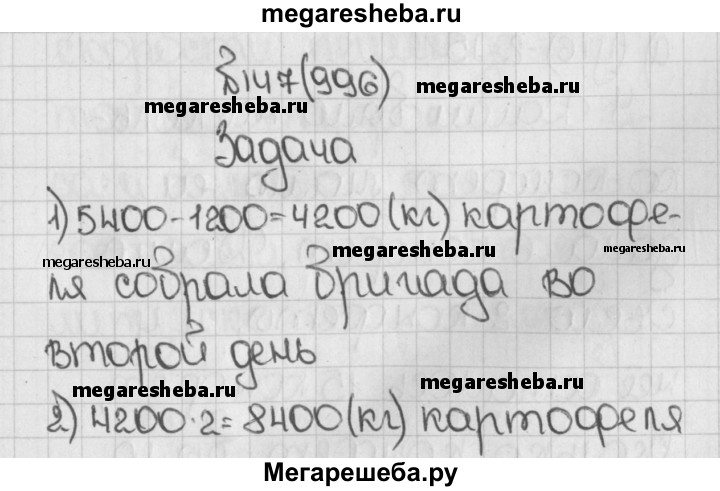 megaresheba.ru
№147(996)
megaresheba.ru
megaresheba.ru
Задача
1) 5400-1200=4200(кг) картофе-
megaresheba.ru
megaresheba.ru
megaresheba.ru
ля собрала бригада во
второй день
megaresheba.ru
megaresheba.ru
2) 4200·2=8400(кг) картофеля
Мегарешеба.ру